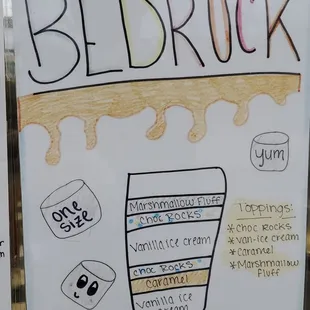 BEDROCK
yum
one
size
Marshmallow Fluff
Choc Rocks
Vanilla ice cream
choc Rocks
caramel
Vanilla Ice
cream
Toppings:
*Choc Rocks
*Van-ice cream
*Caramel
*Marshmallow
Fluff